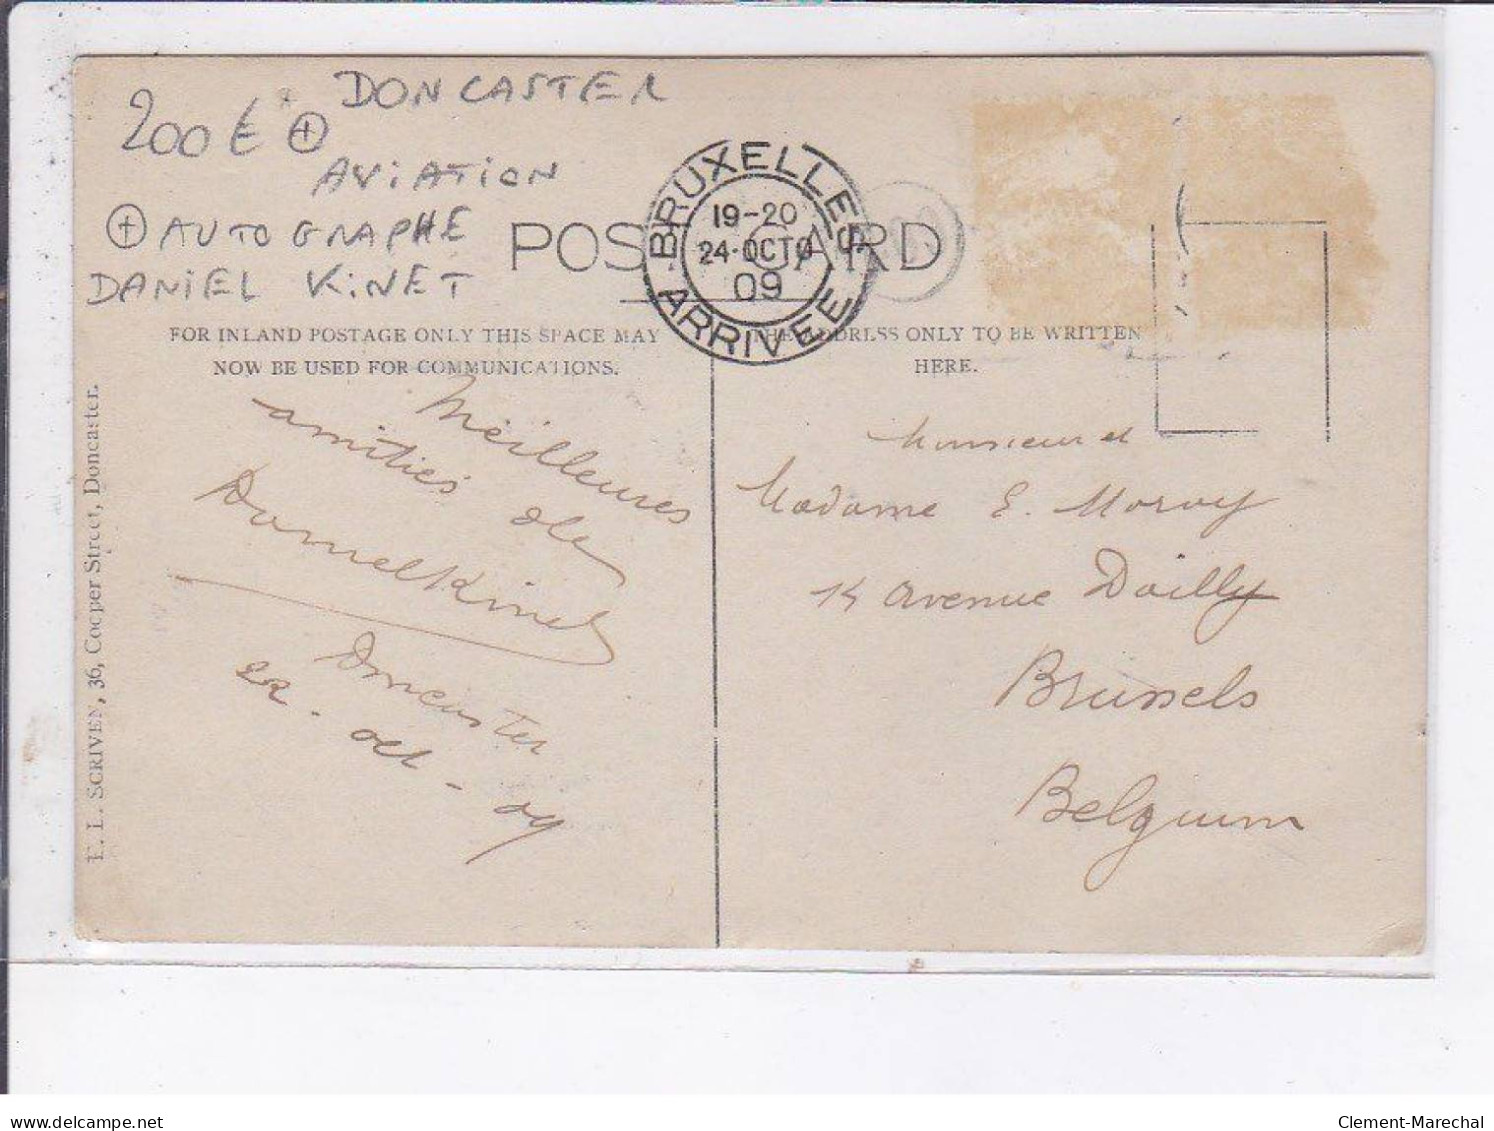 DONCASTER
200€ +
AVIATION
+ AUTOGRAPHE
DANIEL KINET
POST CARD
BRUXELLES
19-20
24·OCTO
09
ARRIVEE
FOR INLAND POSTAGE ONLY THIS SPACE MAY
NOW BE USED FOR COMMUNICATIONS.
THE ADDRESS ONLY TO BE WRITTEN
HERE.
E. L. SCRIVEN, 36, Cooper Street, Doncaster.
Meilleures
amitiés de
Daniel Kinet
Doncaster
22 - oct - 09
Monsieur et
Madame E. Morvoy
14 avenue Dailly
Brussels
Belgium
www.delcampe.net
Clement-Marechal